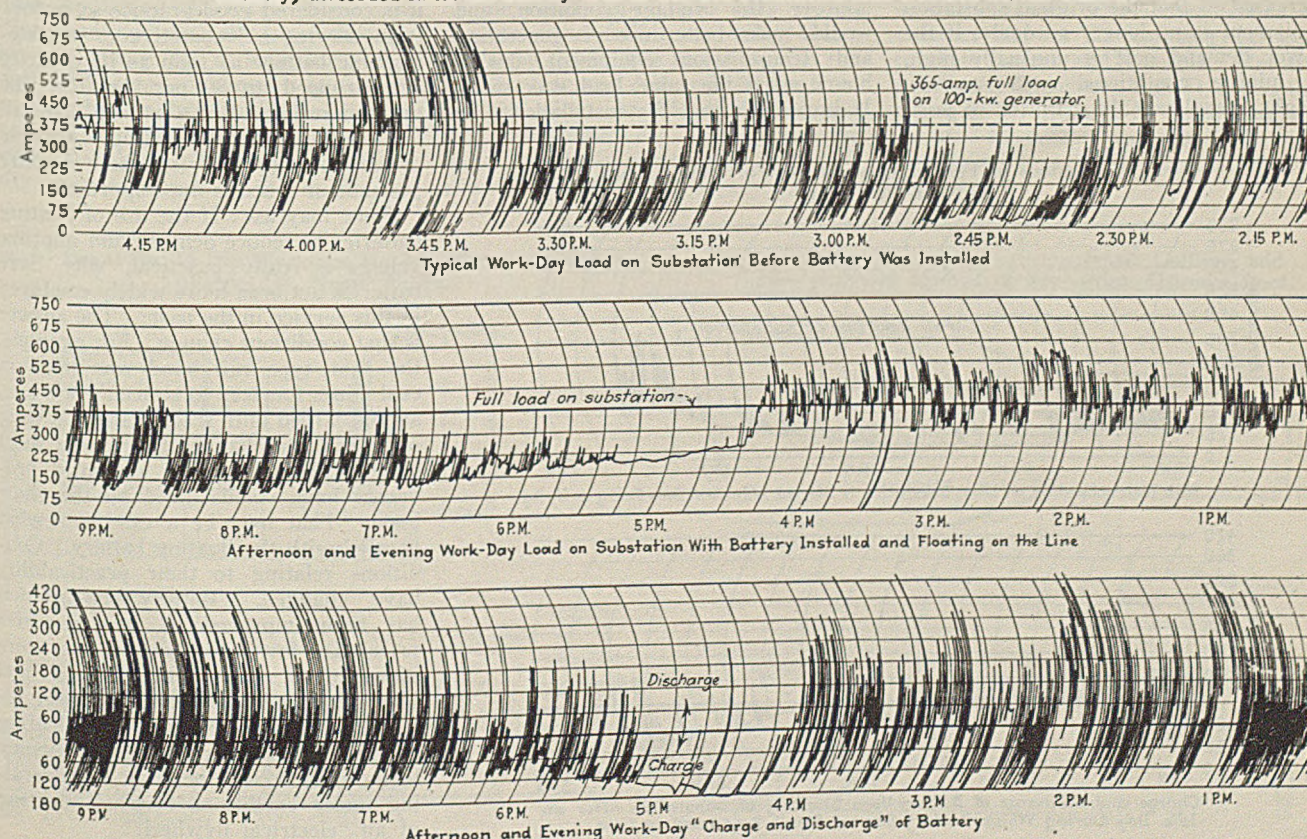 750
675
600
525
450
375
300
225
150
75
0
Amperes
365-amp. full load
on 100-kw. generator
4.15 P.M. 4.00 P.M. 3.45 P.M. 3.30 P.M. 3.15 P.M. 3.00 P.M. 2.45 P.M. 2.30 P.M. 2.15 P.M.
Typical Work-Day Load on Substation Before Battery Was Installed
750
675
600
525
450
375
300
225
150
75
0
Amperes
Full load on substation
9 P.M. 8 P.M. 7 P.M. 6 P.M. 5 P.M. 4 P.M 3 P.M. 2 P.M. 1 P.M.
Afternoon and Evening Work-Day Load on Substation With Battery Installed and Floating on the Line
420
360
300
240
180
120
60
0
60
120
180
Amperes
Discharge
Charge
9 P.M. 8 P.M. 7 P.M. 6 P.M. 5 P.M. 4 P.M. 3 P.M. 2 P.M. 1 P.M.
Afternoon and Evening Work-Day "Charge and Discharge" of Battery